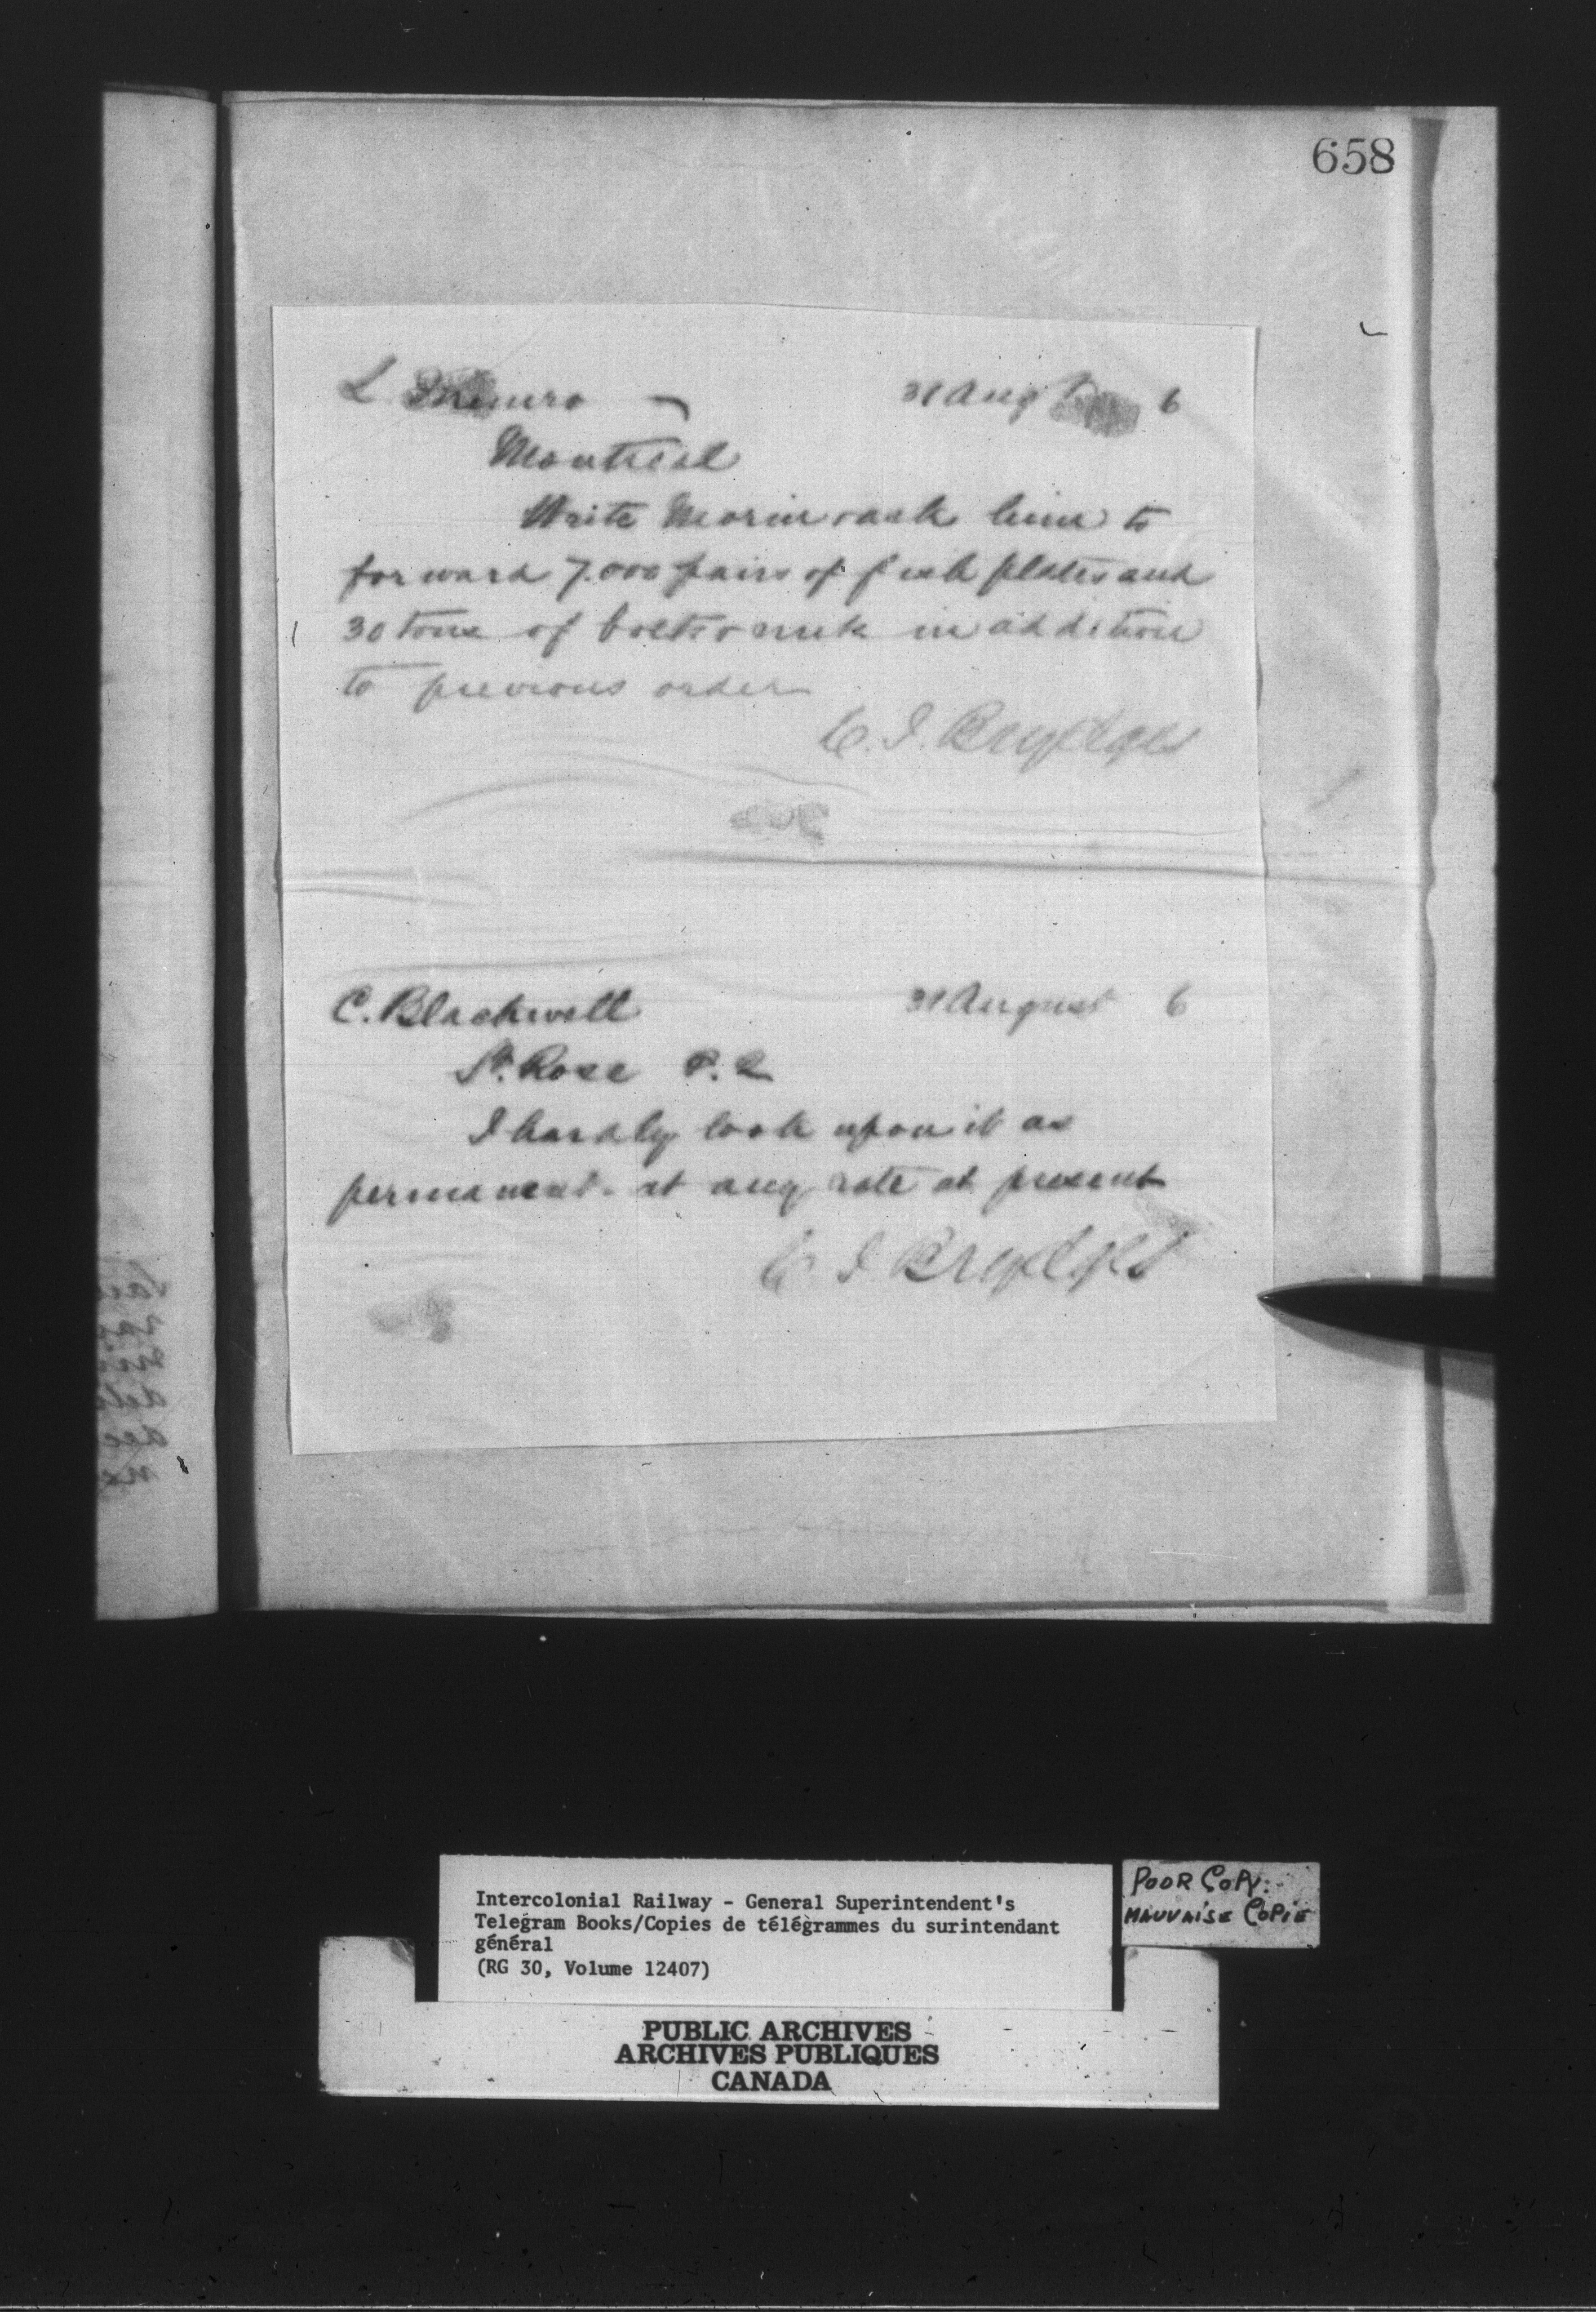 658
L. Munro 31 Augt 6
Montreal
Write Morin & ask him to
forward 7.000 pairs of fish plates and
30 tons of bolts & nuts in addition
to previous order
C. J. Brydges
C. Blackwell 31 August 6
St. Rose P. Q
I hardly look upon it as
permanent - at any rate at present
C J Brydges
Intercolonial Railway - General Superintendent's
Telegram Books/Copies de télégrammes du surintendant
général
(RG 30, Volume 12407)
POOR COPY.
MAUVAISE COPIE
PUBLIC ARCHIVES
ARCHIVES PUBLIQUES
CANADA